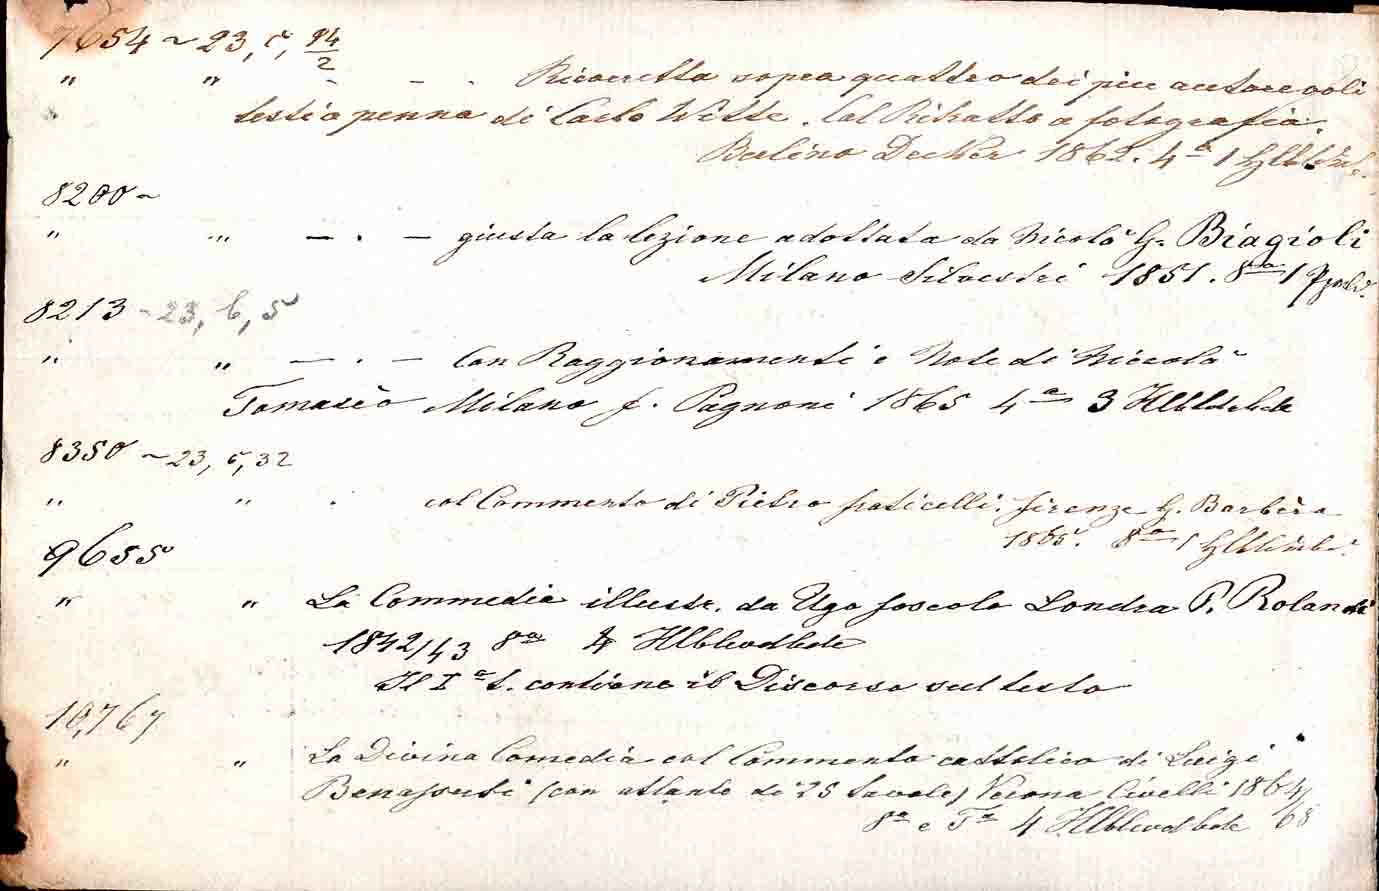 7654 ~ 23, 5, 94/2
" " - - . Ricorretta sopra quattro dei piu autorevoli
testi a penna di Carlo Witte. Col Ritratto a fotografia.
Berlino Decker 1862. 4ª 1
8200 ~
" " — . — giusta la lezione adottata da Nicolò G. Biagioli
Milano Silvestri 1851. 8va 1
8213 ~ 23, 6, 5
" " — . — Con Raggionamenti e Note di Niccolò
Tomasèo Milano f. Pagnoni 1865 4ª 3 Hlbldrbde
8350 ~ 23, 5, 32
" " . col Commento di Pietro fraticelli. firenze G. Barbèra
1865. 8va 1
9655
" " La Commedia illustr. da Ugo foscolo Londra P. Rolandi
1842/43 8va 4 Hlblwdbde
Il Iª t. contiene il Discorso sul testo
10,767
" " La Divina Comedia col Commento cattolico di Luigi
Benassuti (con atlante di 25 tavole) Verona Civelli 1864/
8va e Fª 4 Hlblwdbde 68